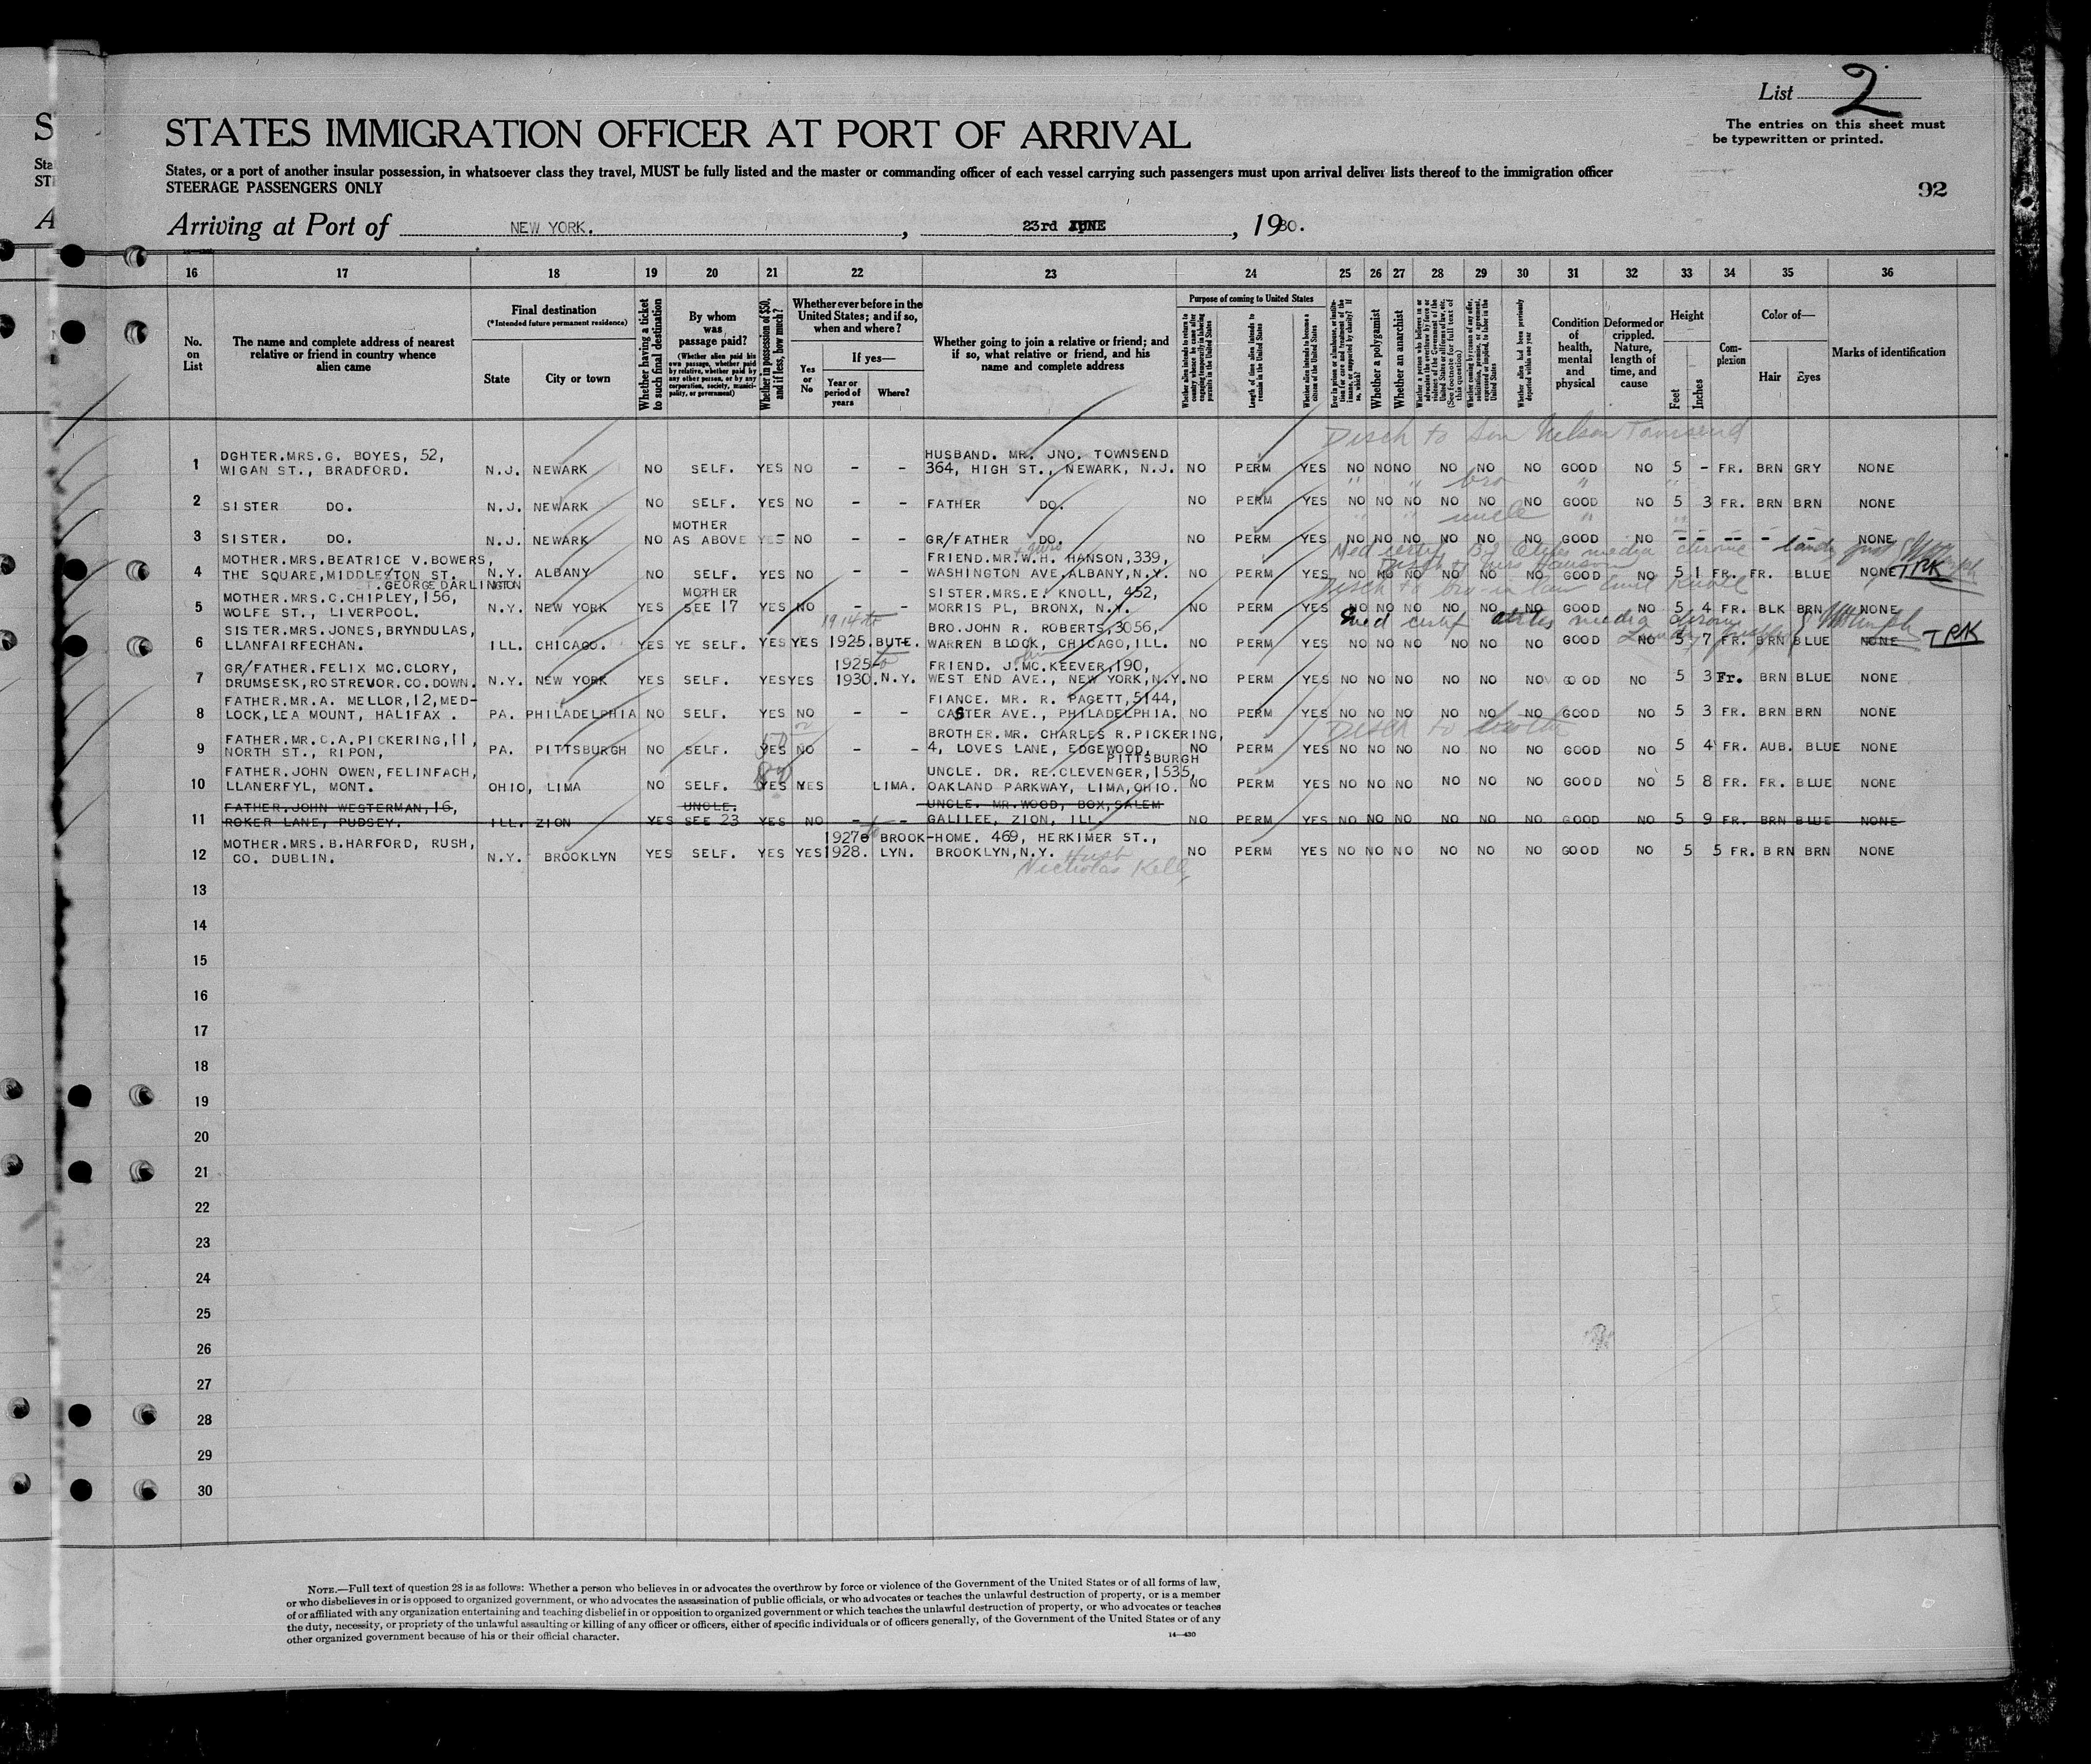 List 2
The entries on this sheet must
be typewritten or printed.
92
STATES IMMIGRATION OFFICER AT PORT OF ARRIVAL
States, or a port of another insular possession, in whatsoever class they travel, MUST be fully listed and the master or commanding officer of each vessel carrying such passengers must upon arrival deliver lists thereof to the immigration officer
STEERAGE PASSENGERS ONLY
Arriving at Port of NEW YORK. , 23rd JUNE , 1930.
16 17 18 19 20 21 22 23 24 25 26 27 28 29 30 31 32 33 34 35 36
No. on List
The name and complete address of nearest relative or friend in country whence alien came
Final destination
(*Intended future permanent residence)
State
City or town
Whether having a ticket to such final destination
By whom was passage paid?
(Whether alien paid his own passage, whether paid by relative, whether paid by any other person, or by any corporation, society, municipality, or government)
Whether in possession of $50, and if less, how much?
Whether ever before in the United States; and if so, when and where?
Yes or No
If yes—
Year or period of years
Where?
Whether going to join a relative or friend; and if so, what relative or friend, and his name and complete address
Purpose of coming to United States
Length of time alien intends to remain in the United States
Whether alien intends to become a citizen of the United States
Whether a polygamist
Whether an anarchist
Whether alien had been previously deported within one year
Condition of health, mental and physical
Deformed or crippled. Nature, length of time, and cause
Height
Feet
Inches
Complexion
Color of—
Hair
Eyes
Marks of identification
Disch to Son Nelson Townsend
1 DGHTER.MRS.G. BOYES, 52, WIGAN ST., BRADFORD. N.J. NEWARK NO SELF. YES NO - - HUSBAND. MR. JNO. TOWNSEND 364, HIGH ST., NEWARK, N.J. NO PERM YES NO NO NO NO NO NO GOOD NO 5 - FR. BRN GRY NONE
" " bro " "
2 SISTER DO. N.J. NEWARK NO SELF. YES NO - - FATHER DO. NO PERM YES NO NO NO NO NO NO GOOD NO 5 3 FR. BRN BRN NONE
" " uncle " "
3 SISTER. DO. N.J. NEWARK NO MOTHER AS ABOVE YES NO - - GR/FATHER DO. NO PERM YES NO NO NO NO NO NO GOOD NO -- -- -- - - NONE
Med certif Otitis media chronic
4 MOTHER.MRS.BEATRICE V.BOWERS, THE SQUARE,MIDDLESTON ST. GEORGE DARLINGTON N.Y. ALBANY NO SELF. YES NO - - FRIEND.MR.W.H. HANSON,339, WASHINGTON AVE,ALBANY,N.Y. NO PERM YES NO NO NO NO NO NO GOOD NO 5 1 FR. FR. BLUE NONE TRK
Disch to Mrs Hanson
Disch to bro-in law Emil Knoll
5 MOTHER.MRS.C.CHIPLEY,156, WOLFE ST., LIVERPOOL. N.Y. NEW YORK YES MOTHER SEE 17 YES NO - - SISTER.MRS.E. KNOLL, 452, MORRIS PL, BRONX, N.Y. NO PERM YES NO NO NO NO NO NO GOOD NO 5 4 FR. BLK BRN NONE
Med certif otitis media chronic
6 SISTER.MRS.JONES,BRYNDULAS, LLANFAIRFECHAN. ILL. CHICAGO. YES YE SELF. YES YES 1914 to 1925. BUTE. BRO.JOHN R. ROBERTS,3056, WARREN BLOCK, CHICAGO,ILL. NO PERM YES NO NO NO NO NO NO GOOD NO 5 7 FR. BRN BLUE NONE TRK
7 GR/FATHER.FELIX MC.CLORY, DRUMSESK,ROSTREVOR.CO.DOWN. N.Y. NEW YORK YES SELF. YES YES 1925 to 1930. N.Y. FRIEND. J.MC.KEEVER,190, WEST END AVE., NEW YORK,N.Y. NO PERM YES NO NO NO NO NO NO GOOD NO 5 3 Fr. BRN BLUE NONE
8 FATHER.MR.A. MELLOR,12,MEDLOCK,LEA MOUNT, HALIFAX. PA. PHILADELPHIA NO SELF. YES NO - - FIANCE. MR. R. PAGETT,5144, CASTER AVE., PHILADELPHIA. NO PERM YES NO NO NO NO NO NO GOOD NO 5 3 FR. BRN BRN NONE
Disch to brother
9 FATHER.MR.C.A.PICKERING,11, NORTH ST., RIPON, PA. PITTSBURGH NO SELF. 50 YES NO - - BROTHER.MR. CHARLES R.PICKERING, 4, LOVES LANE, EDGEWOOD, PITTSBURGH NO PERM YES NO NO NO NO NO NO GOOD NO 5 4 FR. AUB. BLUE NONE
10 FATHER.JOHN OWEN,FELINFACH, LLANERFYL, MONT. OHIO, LIMA NO SELF. YES YES LIMA. UNCLE. DR. RE.CLEVENGER,1535, OAKLAND PARKWAY, LIMA,OHIO. NO PERM YES NO NO NO NO NO NO GOOD NO 5 8 FR. FR. BLUE NONE
11 FATHER.JOHN WESTERMAN,16, ROKER LANE, PUDSEY. ILL. ZION YES UNCLE. SEE 23 YES NO - - UNCLE. MR.WOOD, BOX,SALEM GALILEE, ZION, ILL. NO PERM YES NO NO NO NO NO NO GOOD NO 5 9 FR. BRN BLUE NONE
12 MOTHER.MRS.B.HARFORD, RUSH, CO. DUBLIN. N.Y. BROOKLYN YES SELF. YES YES 1927 to 1928. BROOK-LYN. HOME. 469, HERKIMER ST., BROOKLYN,N.Y. NO PERM YES NO NO NO NO NO NO GOOD NO 5 5 FR. BRN BRN NONE
Husb
Nicholas Kelly
13
14
15
16
17
18
19
20
21
22
23
24
25
26
27
28
29
30
NOTE.—Full text of question 28 is as follows: Whether a person who believes in or advocates the overthrow by force or violence of the Government of the United States or of all forms of law,
or who disbelieves in or is opposed to organized government, or who advocates the assassination of public officials, or who advocates or teaches the unlawful destruction of property, or is a member
of or affiliated with any organization entertaining and teaching disbelief in or opposition to organized government or which teaches the unlawful destruction of property, or who advocates or teaches
the duty, necessity, or propriety of the unlawful assaulting or killing of any officer or officers, either of specific individuals or of officers generally, of the Government of the United States or of any
other organized government because of his or their official character.
14—430